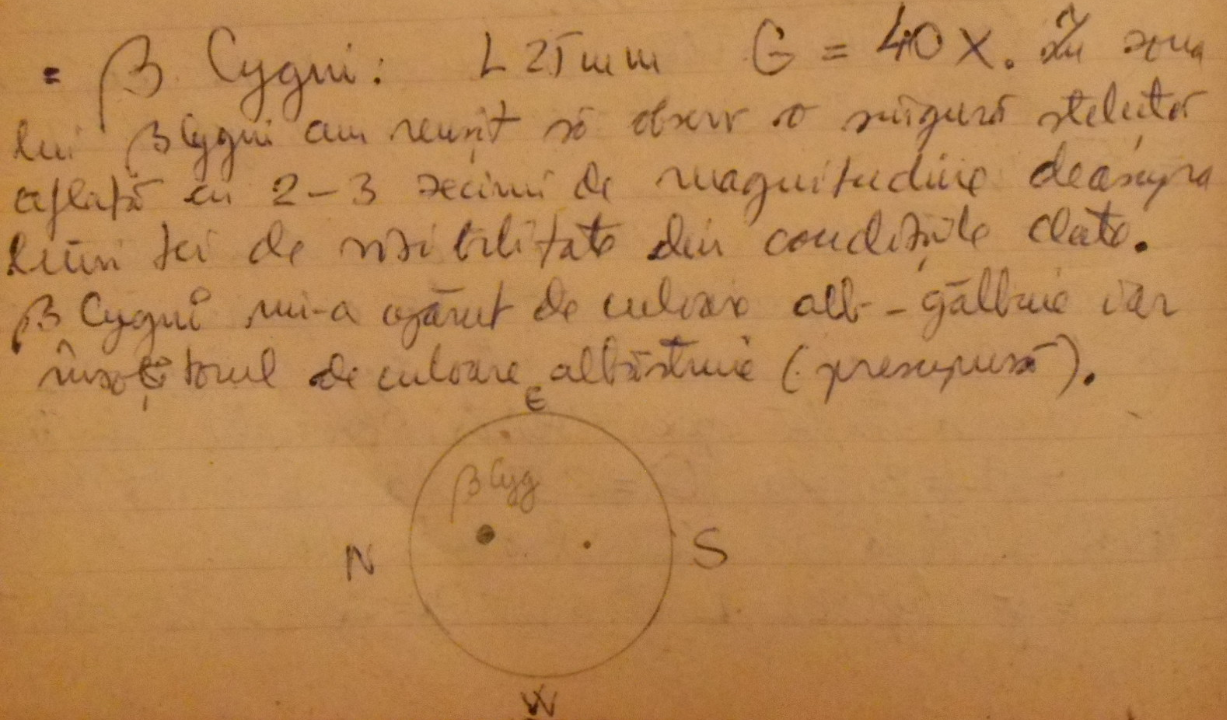 = β Cygni: L 25mm G = 40X. În zona
lui β Cygni am reușit să observ o singură steluță
aflată cu 2-3 zecimi de magnitudine deasupra
limitei de vizibilitate din condițiile date.
β Cygni mi-a apărut de culoare alb-gălbuie iar
însoțitorul de culoare albăstruie (presupusă).
E
β Cyg
N S
W